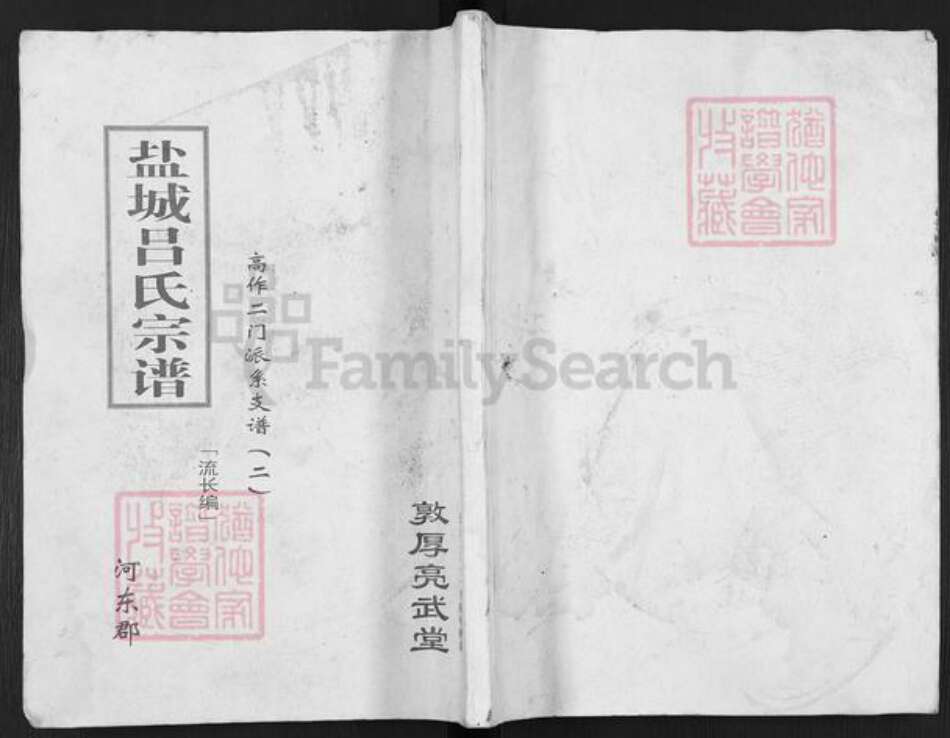 盐城吕氏宗谱
高作二门派系支谱（二）
「流长编」
河东郡
敦厚亮武堂
FamilySearch
譜學會
收藏
譜學會
收藏